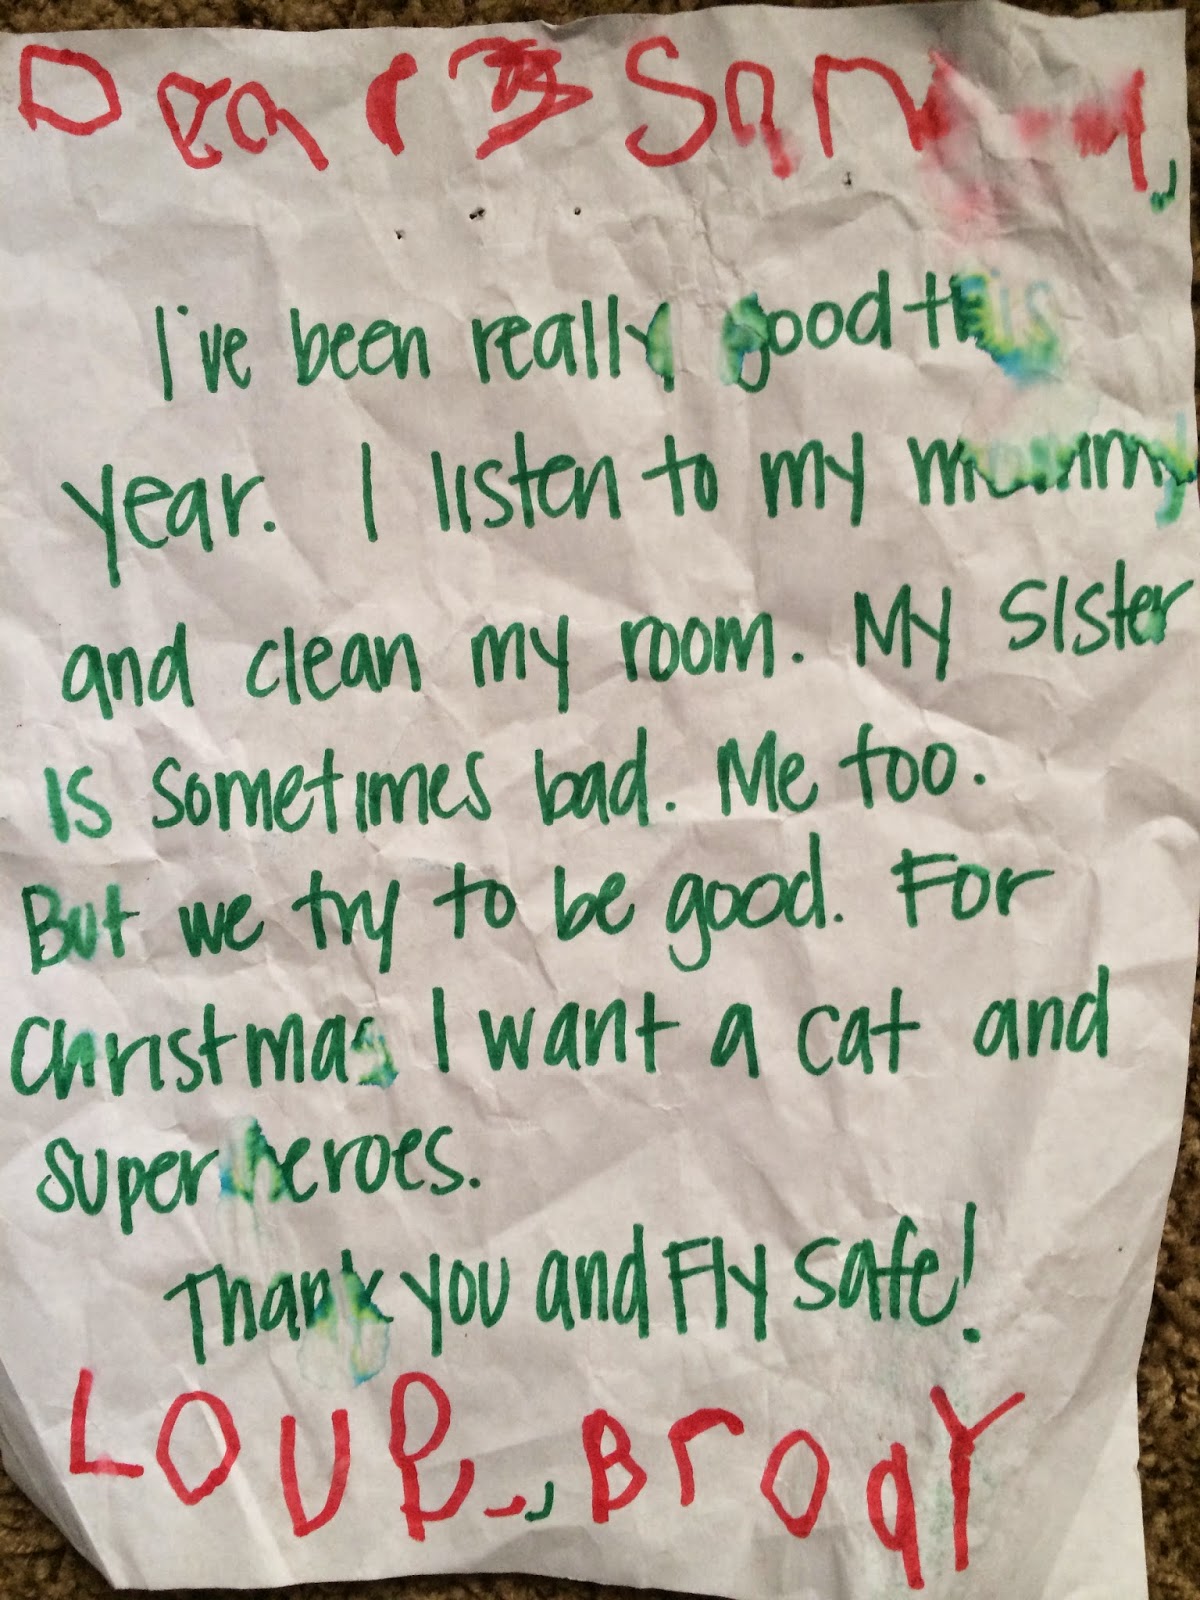 Dear
I've been really good this
year. I listen to my mommy
and clean my room. My sister
is sometimes bad. Me too.
But we try to be good. For
Christmas I want a cat and
super heroes.
Thank you and Fly safe!
Love, Brody